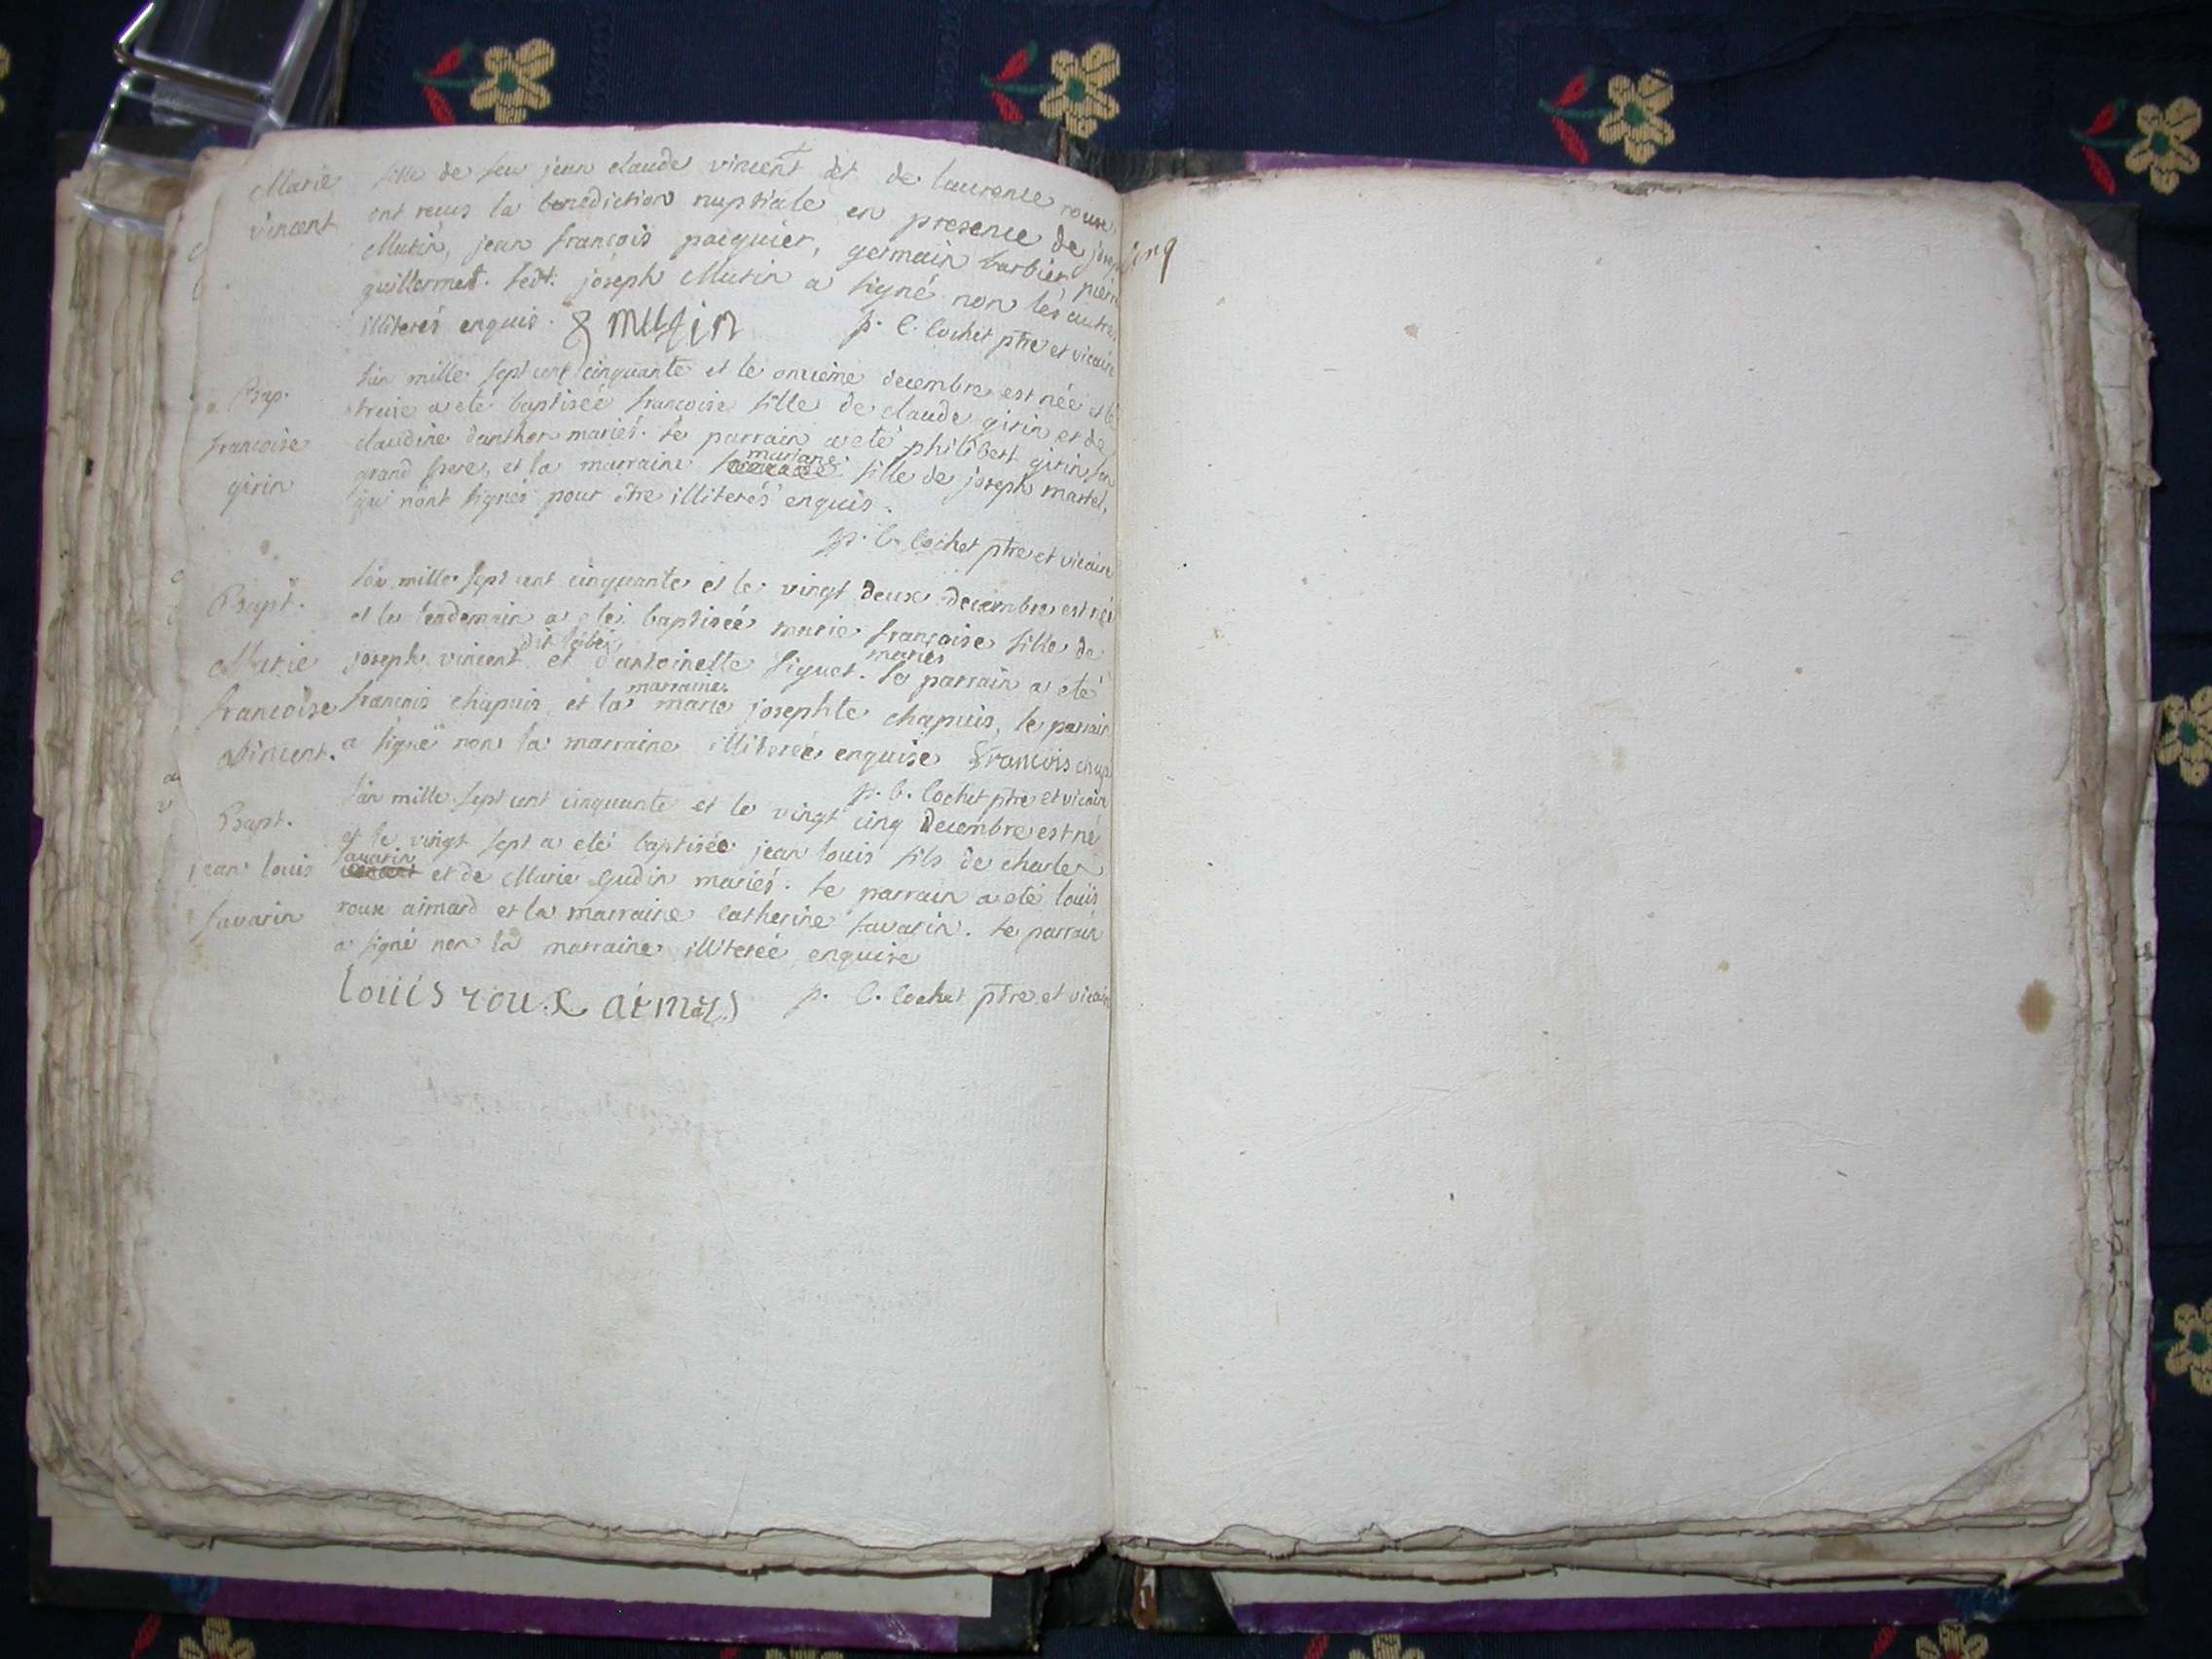 Marie fille de feu jean claude vincent et de laurence roux
vincent ont recus la benediction nuptiale en presence de joseph
Mutin, jean françois paiquier, germain barbier, pierre
guillermet. ledt. joseph Mutin a signé non les autres
illiterés enquis. J mutin p. b. Cochet ptre et vicaire
Bap. l'an mille sept cent cinquante et le onzieme decembre est née et le
treize a eté baptisée francoise fille de claude girin et de
francoise claudine danthon mariés. le parrain a eté philibert girin son
mariane
girin grand frere, et la marraine fille de joseph martel,
qui n'ont signés pour être illiterés enquis.
p. b. Cochet ptre et vicaire
Bapt. l'an mille sept cent cinquante et le vingt deux decembre est née
et le lendemain a eté baptisée marie françoise fille de
dit mariés
Marie joseph vincent et d'antoinette siguet. le parrain a eté
marraine
francoise francois chapuis et la marie josephte chapuis, le parrain
vincent. a signé non la marraine illiterée enquise francois chap
p. b. Cochet ptre et vicaire
Bapt. l'an mille sept cent cinquante et le vingt cinq decembre est né
et le vingt sept a eté baptisée jean louis fils de charles
savarin
jean louis et de Marie gudin mariés. le parrain a eté louis
savarin roux aimard et la marraine catherine savarin. le parrain
a signé non la marraine illiterée enquise
louis roux aimard p. b. Cochet ptre et vicaire